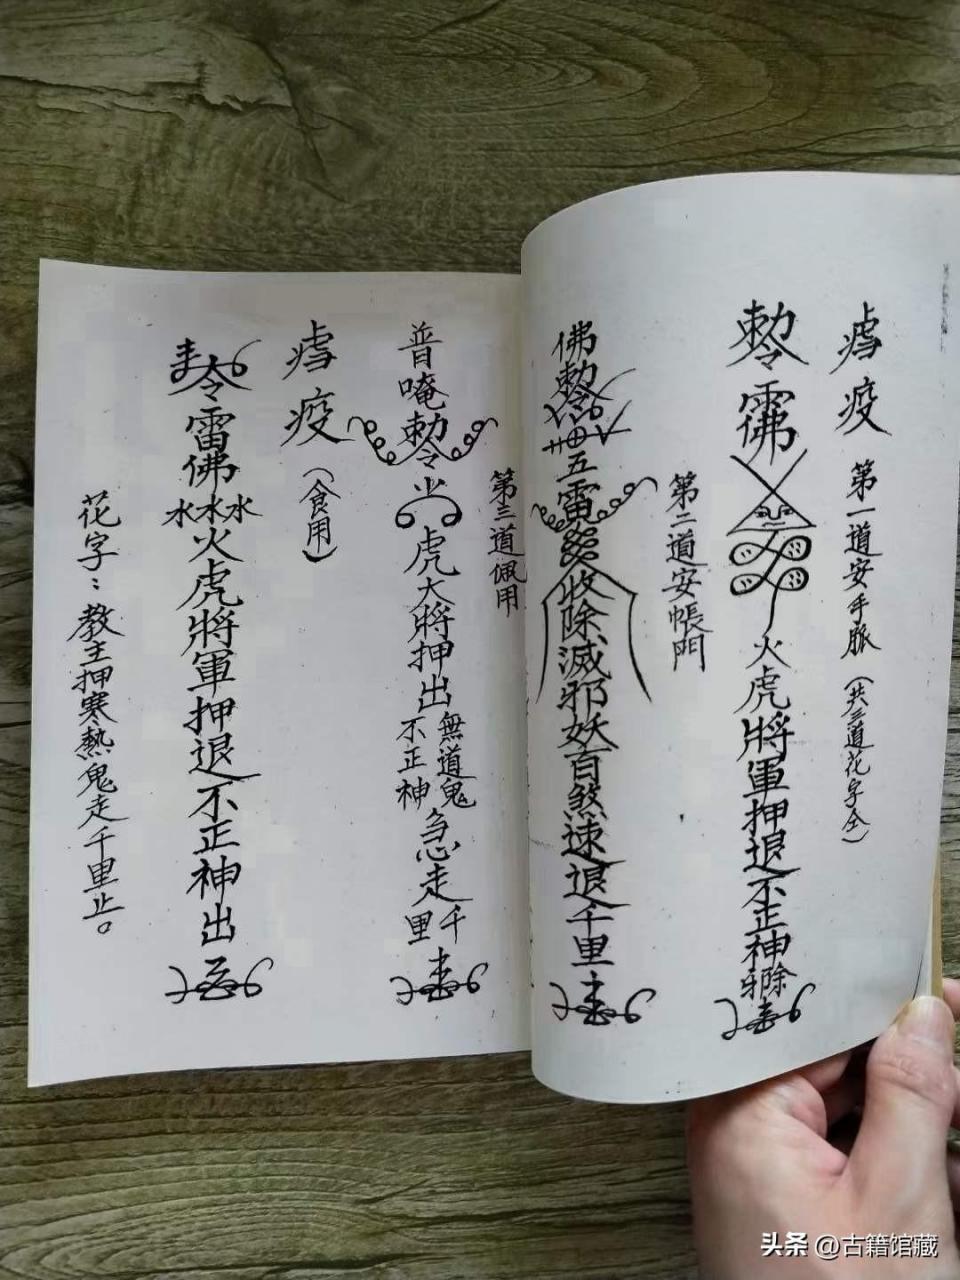 瘧疫
第一道安手脈（共三道花字全）
勅令雷佛火虎將軍押退不正神邪除
第二道安帳門
佛勅令五雷收除滅邪妖百煞速退千里
第三道佩用
普唵勅令虎大將押出無道鬼不正神急走千里
瘧疫
（食用）
令雷佛水水水火虎將軍押退不正神出
花字：教主押寒熱鬼走千里止。
头条 @古籍馆藏